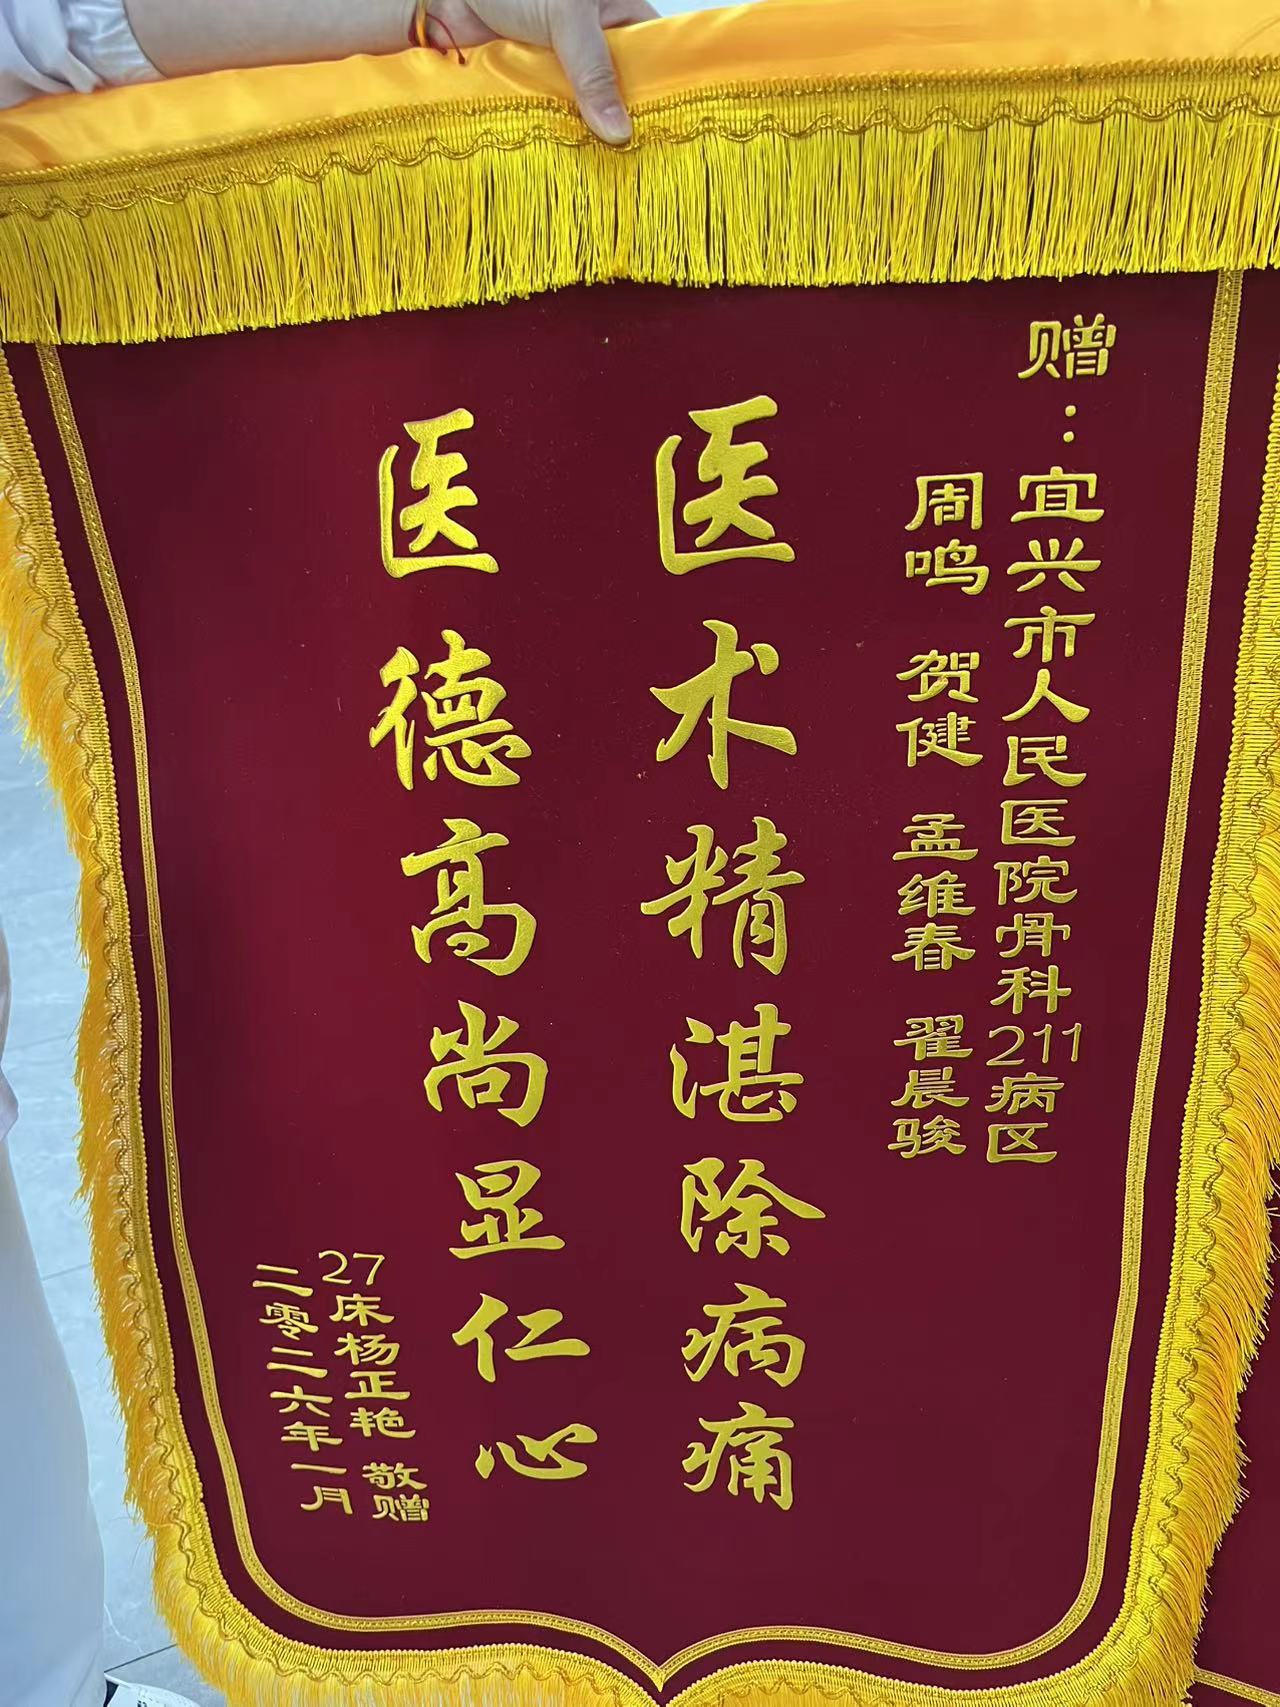 赠：宜兴市人民医院骨科211病区
周鸣 贺健 孟维春 翟晨骏
医术精湛除病痛
医德高尚显仁心
27床杨正艳 敬赠
二零二六年一月